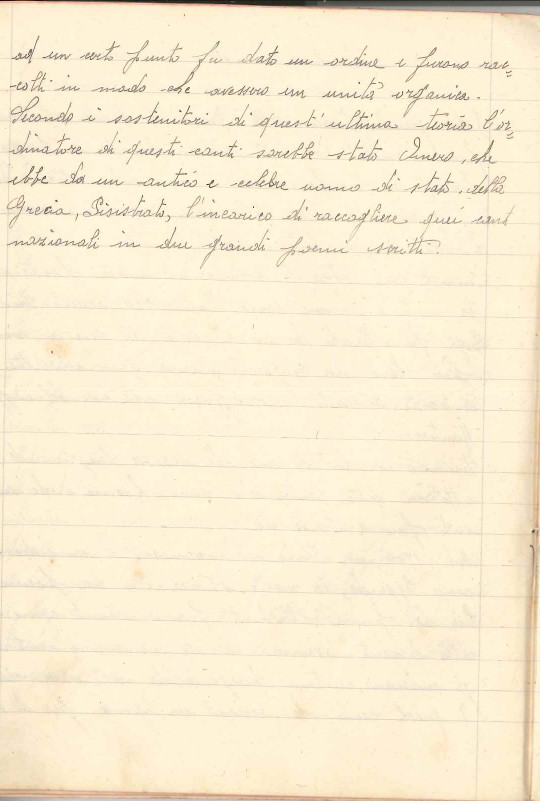 ad un certo punto fu dato un ordine e furono rac=
colti in modo che avessero un unità organica.
Secondo i sostenitori di quest'ultima teoria l'or=
dinatore di questi canti sarebbe stato Omero, che
ebbe da un antico e celebre uomo di stato, della
Grecia, Pisistrato, l'incarico di raccogliere quei cant
nazionali in due grandi poemi scritti.